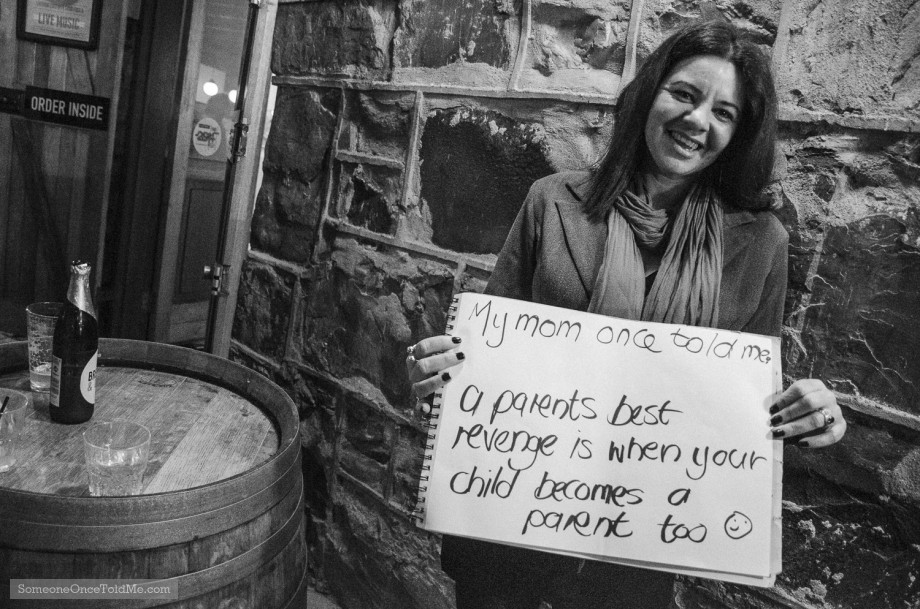 LIVE MUSIC
ORDER INSIDE
My mom once told me,
a parents best
revenge is when your
child becomes a
parent too
SomeoneOnceToldMe.com